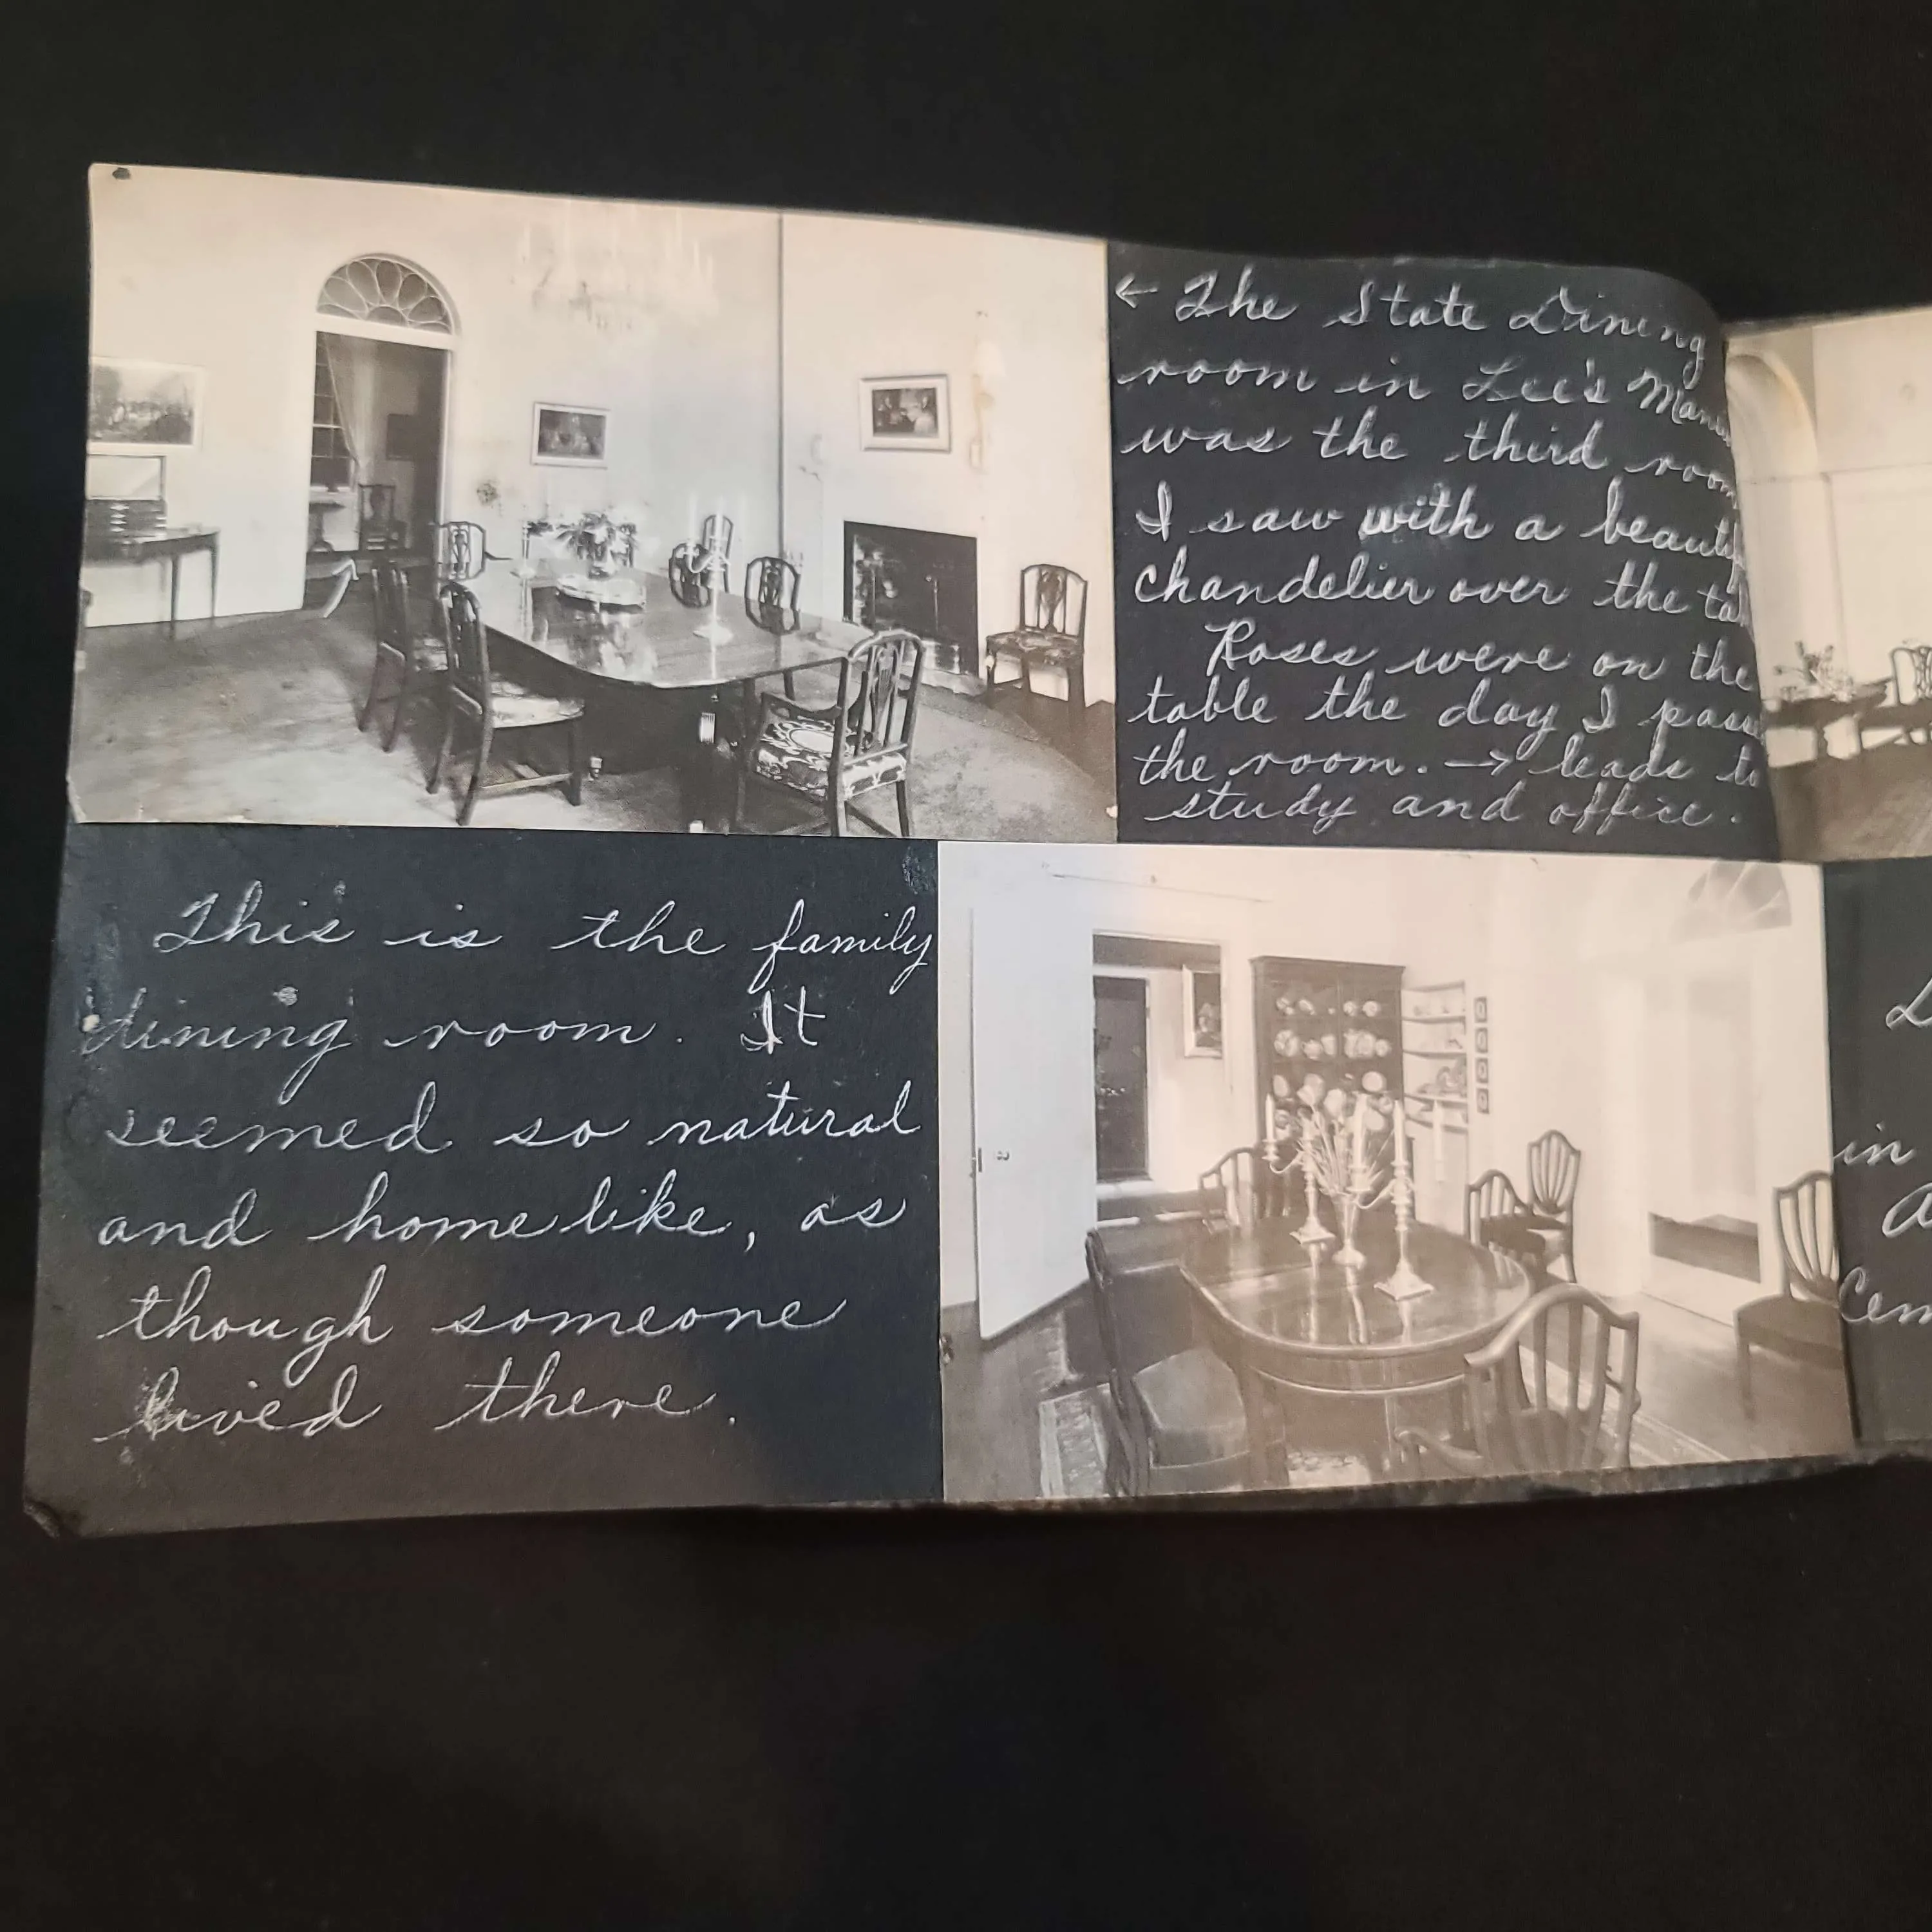 ← The State Dining
room in Lee's
was the third room
I saw with a
chandelier over the
Roses were on the
table the day I
the room. → leads to
study and office.
This is the family
dining room. It
seemed so natural
and homelike, as
though someone
lived there.
in